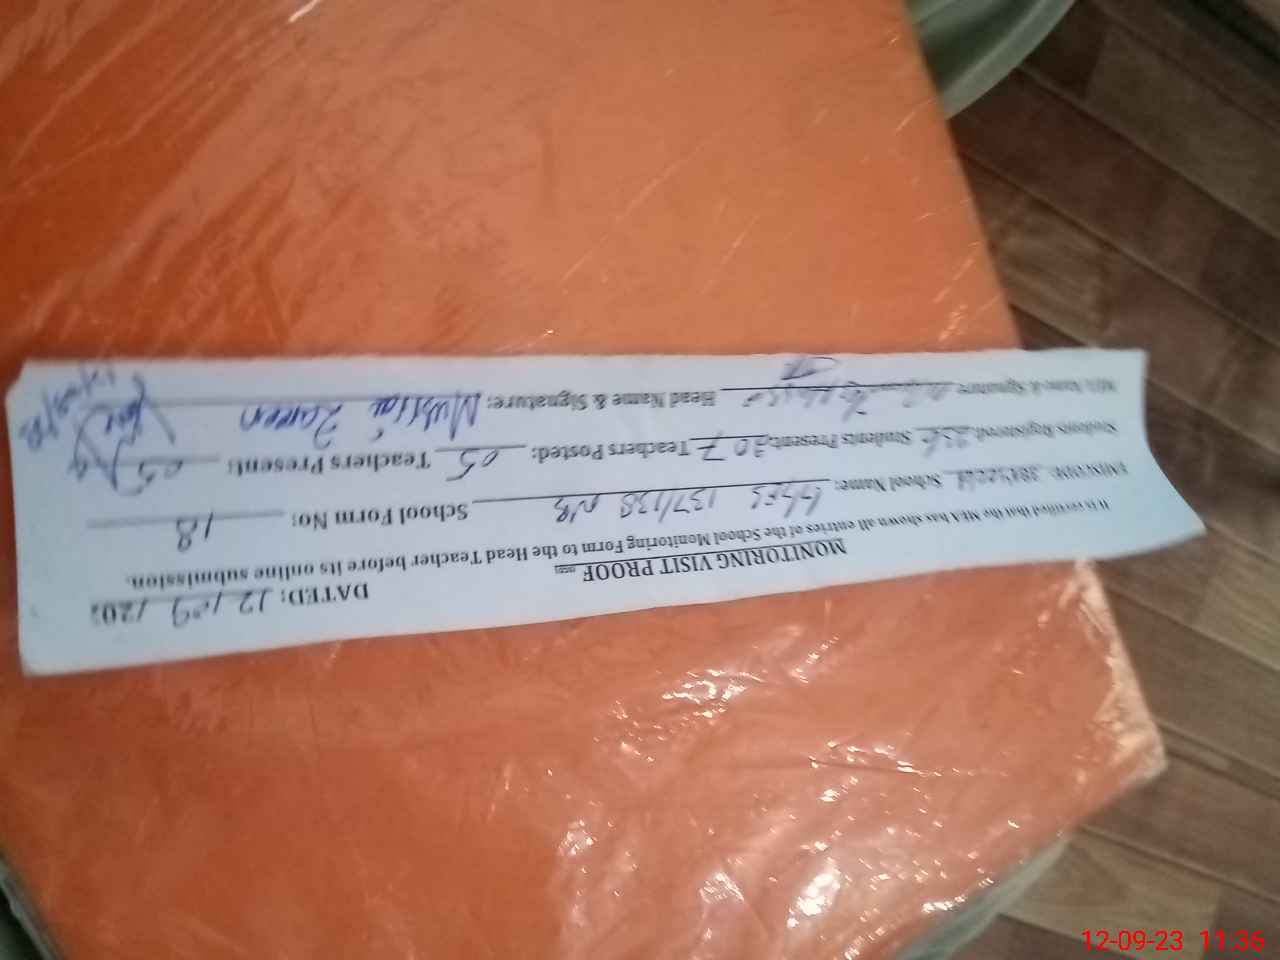 MONITORING VISIT PROOF DATED: 12/09/202
It is certified that the MEA has shown all entries of the School Monitoring Form to the Head Teacher before its online submission.
EMISCODE: School Name: 137/138 NB School Form No: 18
Students Registered: 236 Students Present: 207 Teachers Posted: 05 Teachers Present: 05
MEA Name & Signature: Head Name & Signature:
12-09-23 11:36